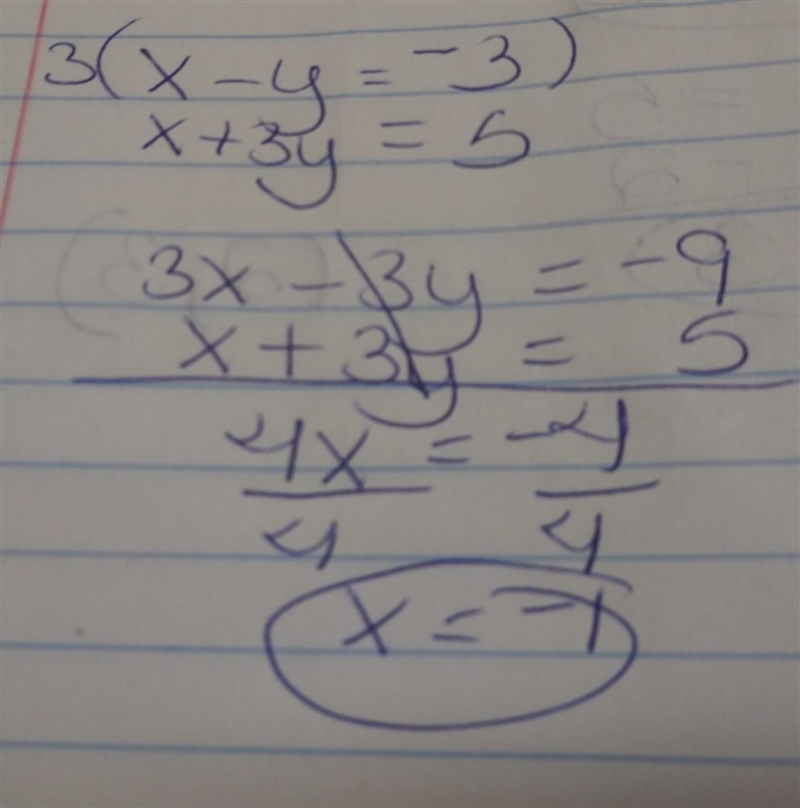 3(x - y = -3)
x + 3y = 5
3x - 3y = -9
x + 3y = 5
4x = -4
4 4
x = -1